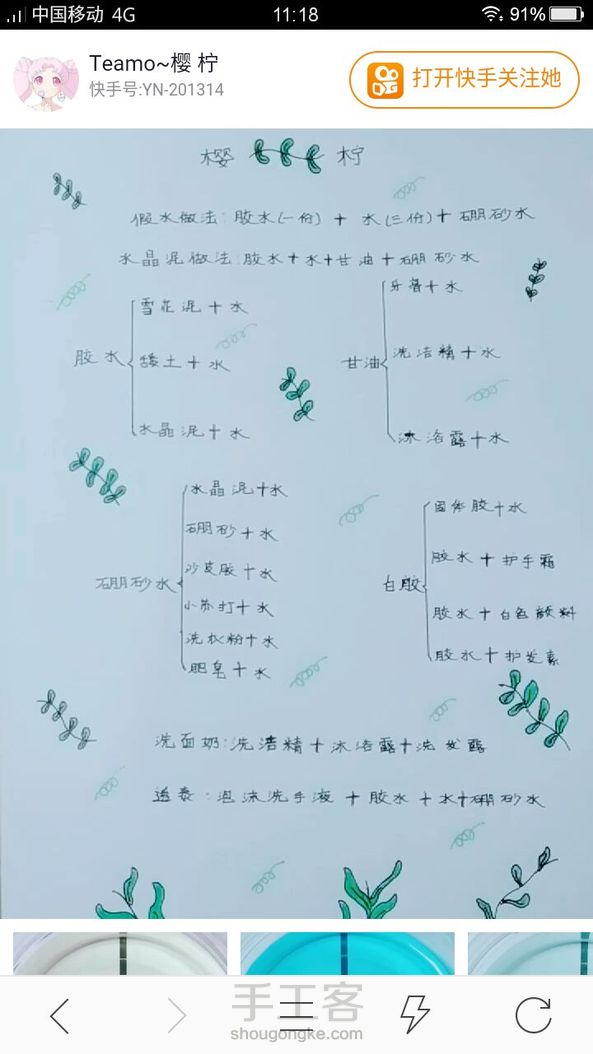 中国移动 4G 11:18 91%
Teamo~樱 柠
快手号:YN-201314
打开快手关注她
樱 柠
假水做法:胶水(一份) + 水(三份) + 硼砂水
水晶泥做法:胶水+水+甘油+硼砂水
胶水
雪花泥+水
矮土+水
水晶泥+水
甘油
牙膏+水
洗洁精+水
沐浴露+水
硼砂水
水晶泥+水
硼砂+水
沙皮胶+水
小苏打+水
洗衣粉+水
肥皂+水
白胶
固体胶+水
胶水+护手霜
胶水+白色颜料
胶水+护发素
洗面奶:洗洁精+沐浴露+洗发露
透泰:泡沫洗手液+胶水+水+硼砂水
手工客
shougongke.com